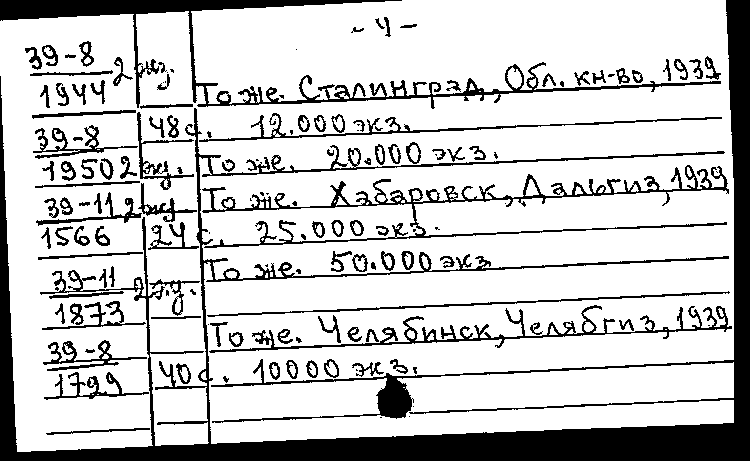 - 4 -
39-8
1944 2 экз. То же. Сталинград, Обл. кн-во, 1939
39-8 48 с. 12.000 экз.
1950 2 экз. То же. 20.000 экз.
39-11 2 экз То же. Хабаровск, Дальгиз, 1939
1566 24 с. 25.000 экз.
39-11 2 э. То же. 50.000 экз
1873
39-8 То же. Челябинск, Челябгиз, 1939
1799 40 с. 10000 экз.